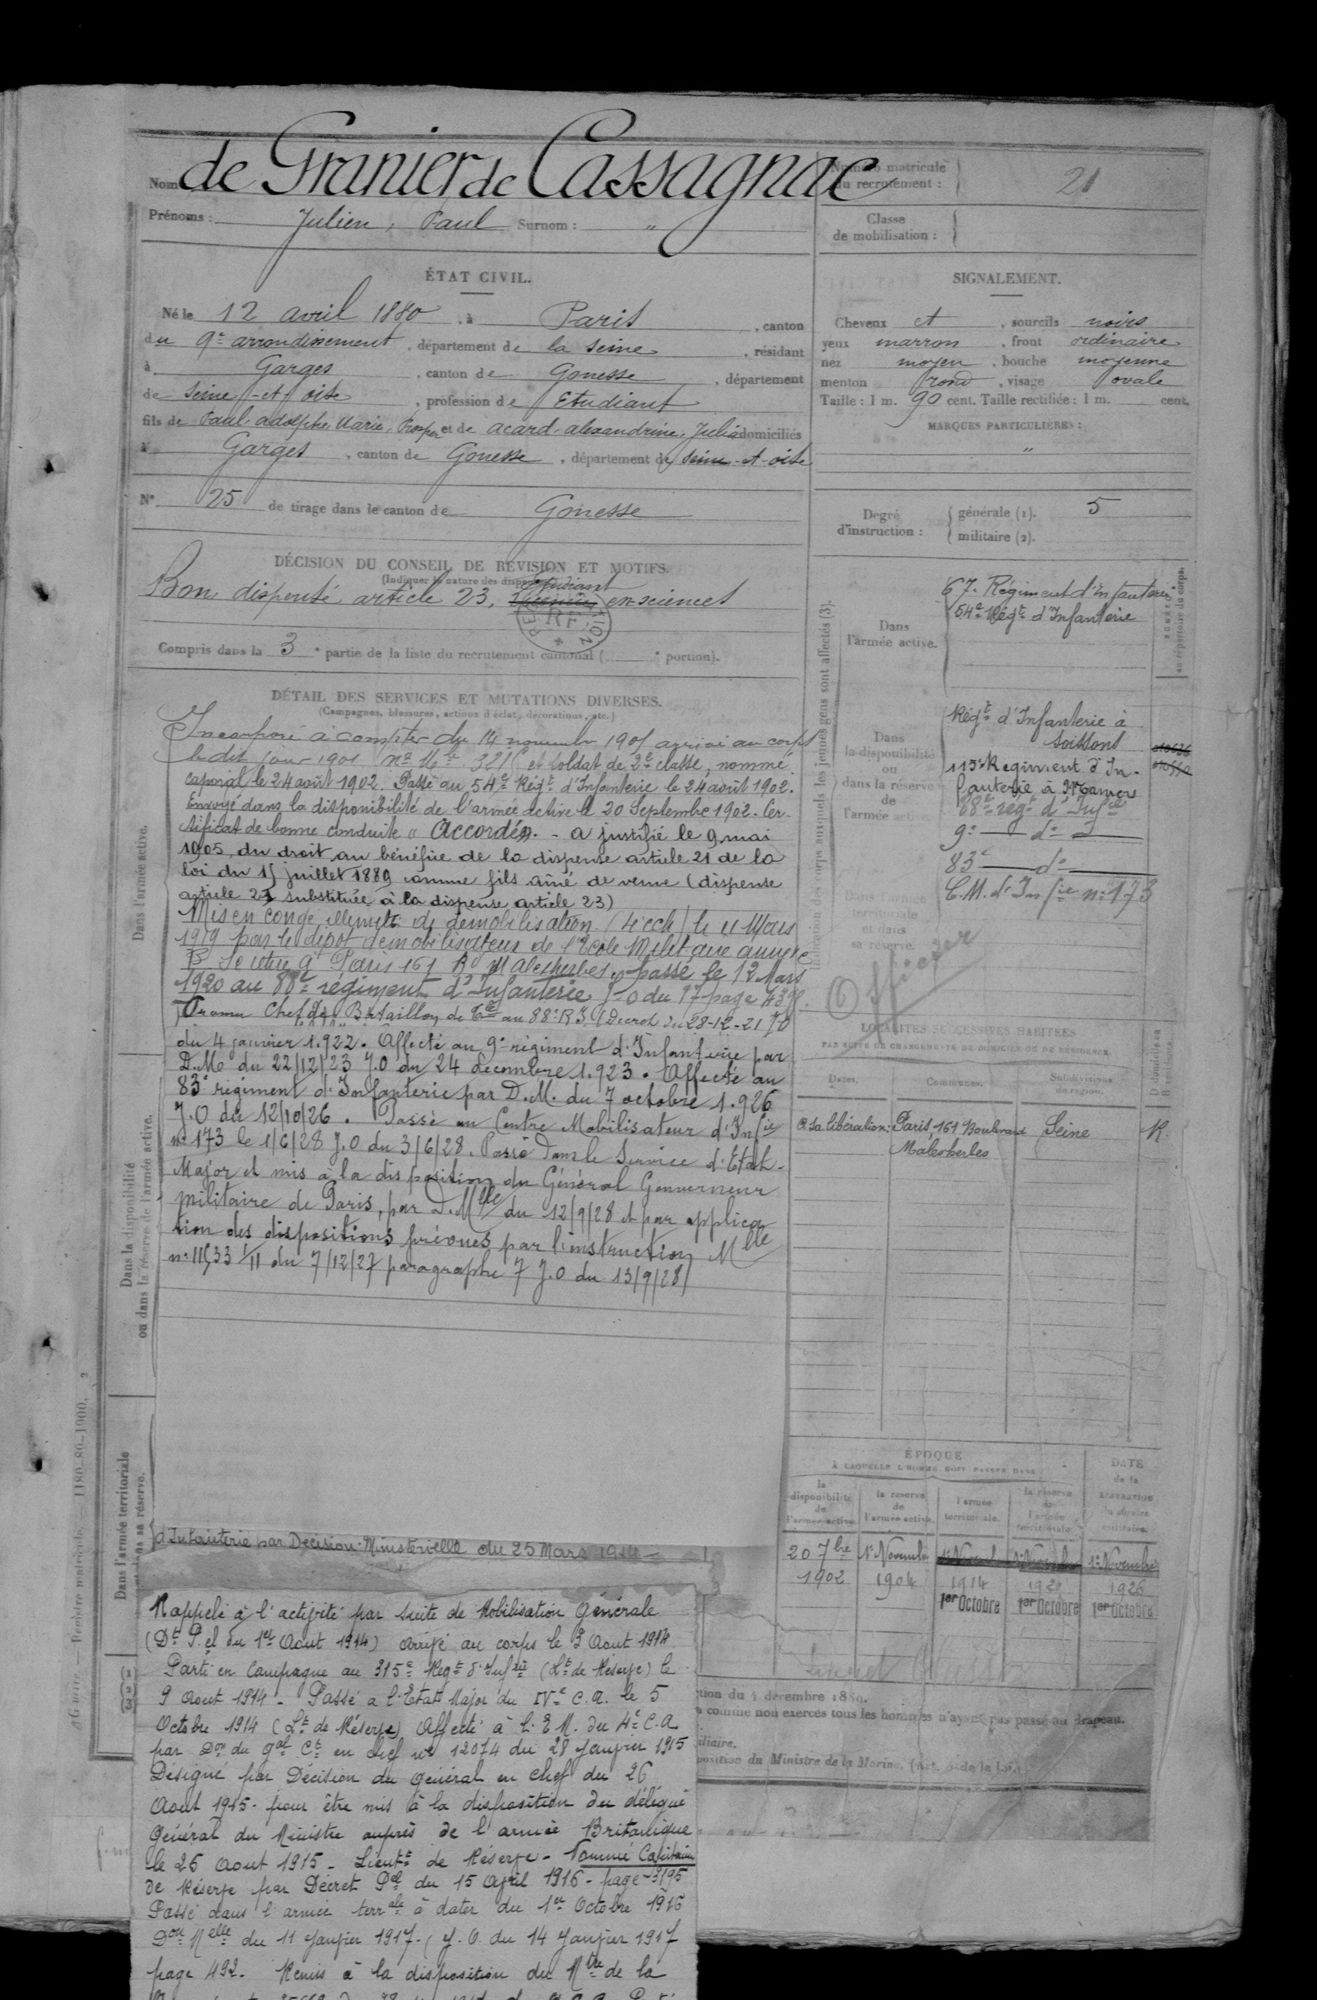 Nom de Granier de Cassagnac
Prénoms : Julien, Paul Surnom : "
Numéro matricule du recrutement : 21
Classe de mobilisation :
ÉTAT CIVIL.
Né le 12 avril 1880, à Paris, canton
du 9e arrondissement, département de la Seine, résidant
à Garges, canton de Gonesse, département
de Seine-et-oise, profession de Etudiant
fils de Paul, adolphe, Marie, Prosper et de acard, alexandrine, Julia domiciliés
à Garges, canton de Gonesse, département de Seine-et-oise
N° 25 de tirage dans le canton de Gonesse
SIGNALEMENT.
Cheveux et, sourcils noirs
yeux marron, front ordinaire
nez moyen, bouche moyenne
menton rond, visage ovale
Taille : 1 m. 90 cent. Taille rectifiée : 1 m. cent.
MARQUES PARTICULIÈRES :
"
Degré d'instruction : générale (1). 5
militaire (2).
DÉCISION DU CONSEIL DE RÉVISION ET MOTIFS.
(Indiquer la nature des dispenses)
étudiant
Bon, dispensé article 23, en sciences
Compris dans la 3e partie de la liste du recrutement cantonal ( e portion).
DÉTAIL DES SERVICES ET MUTATIONS DIVERSES.
(Campagnes, blessures, actions d'éclat, décorations, etc.)
Incorporé à compter du 14 novembre 1901 arrivé au corps
le dit jour 1901 no Mle 3216 et soldat de 2e classe, nommé
caporal le 24 août 1902. Passé au 54e Régt d'Infanterie le 24 août 1902.
Envoyé dans la disponibilité de l'armée active le 20 Septembre 1902. Cer-
tificat de bonne conduite "Accordé". - a justifié le 9 mai
1905, du droit au bénéfice de la dispense article 21 de la
loi du 15 juillet 1889 comme fils aîné de veuve (dispense
article 21 substituée à la dispense article 23)
Mis en congé illimité de démobilisation (4e ech) le 11 Mars
1919 par le dépôt démobilisateur de l'école Militaire annexe
Se retire à Paris 161 Bd Malesherbes, passé le 12 Mars
1920 au 88e régiment d'Infanterie J.O du 17 page
Promu Chef de Bataillon de Tre au 88e R.I. (Décret du 28-12-21 J.O
du 4 janvier 1.922. Affecté au 9e régiment d'Infanterie par
D.M. du 22/12/23 J.O du 24 décembre 1.923. Affecté au
83e régiment d'Infanterie par D.M. du 7 octobre 1.926
J.O du 12/10/26. Passé au Centre Mobilisateur d'Infie
no 173 le 1/6/28 J.O du 3/6/28. Passé dans le Service d'Etat-
Major et mis à la disposition du Général Gouverneur
militaire de Paris, par D.Mlle du 12/9/28 et par applica-
tion des dispositions prévues par l'instruction Mlle
no 11533 1/11 du 7/12/27 paragraphe 7 J.O du 13/9/28)
d'Infanterie par Décision Ministérielle du 25 Mars 1914 -
Rappelé à l'activité par suite de Mobilisation Générale
(Dt P.el du 1er Aout 1914) arrivé au corps le 3 Aout 1914
Parti en Campagne au 315e Régt d'Infrie (Lt de Réserve) le
9 Aout 1914 - Passé à l'Etat Major du IVe C.A. le 5
Octobre 1914 (Lt de Réserve) Affecté à l'E.M. du 4e C.A.
par Don du gal Ct en chef no 12074 du 28 Janvier 1915
Désigné par Décision du général en chef du 26
Aout 1915 - pour être mis à la disposition du délégué
Général du Ministre auprès de l'armée Britannique
le 26 Aout 1915 - Lieutt de Réserve - Nommé Capitaine
de Réserve par Décret Pel du 15 April 1916 - page 3195
Passé dans l'armée terrale à dater du 1er Octobre 1916
Don Melle du 11 Janvier 1917 - (J.O. du 14 Janvier 1917
page 492. Remis à la disposition du Mtre de la
Indication des corps auxquels les jeunes gens sont affectés (3).
Dans l'armée active.
67e Régiment d'infanterie
54e Régt d'Infanterie
Dans la disponibilité ou dans la réserve de l'armée active.
Régt d'Infanterie à
Soissons
115e Régiment d'In-
fanterie à Mamers
88e régt d'Infie
9e — do —
83e — do
C.M. d'Infie no 173
Dans l'armée territoriale et dans sa réserve.
Officier
LOCALITÉS SUCCESSIVES HABITÉES
PAR SUITE DE CHANGEMENTS DE DOMICILE OU DE RÉSIDENCE.
Dates. Communes. Subdivisions de région. D domicile ou R résidence.
à sa libération : Paris, 161 Boulevard Malesherbes Seine R.
ÉPOQUE
À LAQUELLE L'HOMME DOIT PASSER DANS :
la disponibilité de l'armée active. la réserve de l'armée active. l'armée territoriale. la réserve de l'armée territoriale. DATE de la LIBÉRATION du service militaire.
20 7bre 1902
1er Novembre 1904
1er Novembre 1914 1er Octobre
1er Novembre 1920 1er Octobre
1er Novembre 1926 1er Octobre
tion du 4 décembre 1889.
comme non exercés tous les hommes n'ayant pas passé au drapeau.
iliaire.
position du Ministre de la Marine.
Dans l'armée active.
Dans la disponibilité ou dans la réserve de l'armée active.
Dans l'armée territoriale et dans sa réserve.